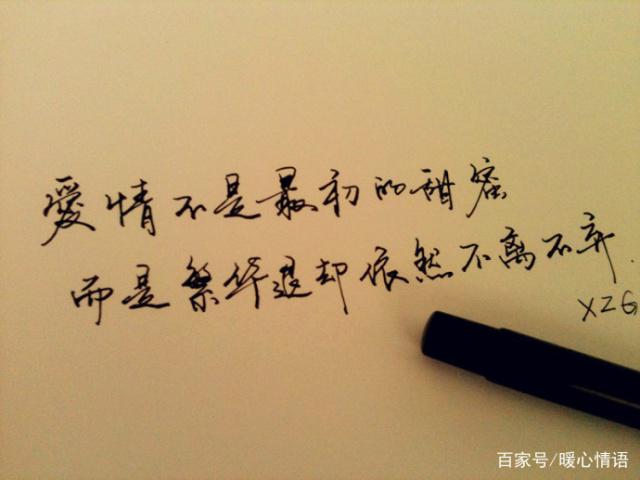 愛情不是最初的甜蜜
而是繁华退却依然不离不弃.
XZG
百家号/暖心情语